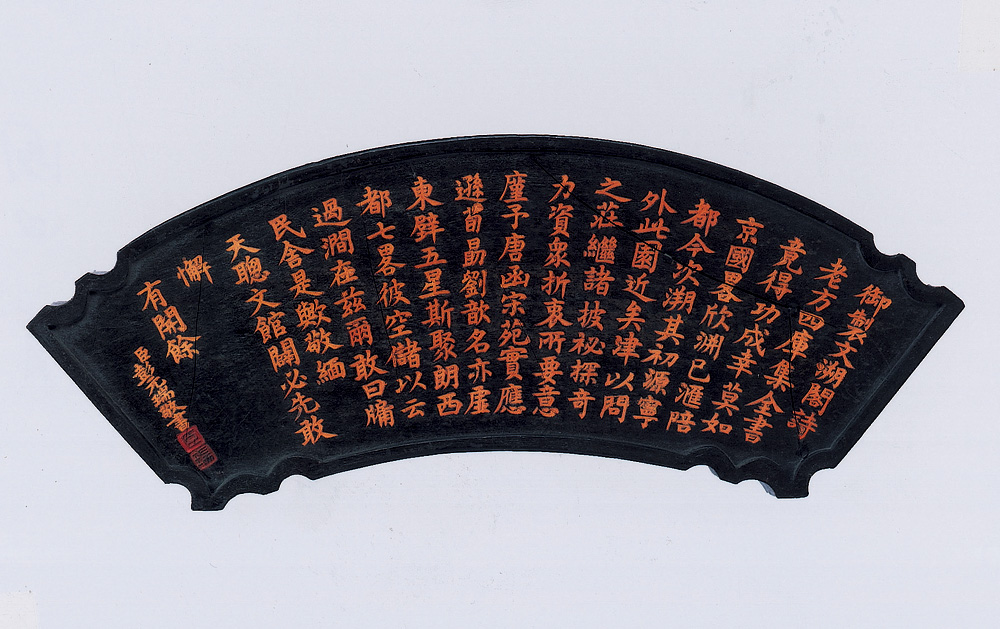 御製文溯閣詩
老方四庫集全書
竟得功成幸莫如
京國畧欣淵已滙陪
都今次溯其初源寧
外此園近矣津以問
之莊繼諸披祕探奇
力資衆折衷所要意
廑予唐函宗苑實應
遜荀勗劉歆名亦虛
東壁五星斯聚朗西
都七畧彼空儲以云
過澗在茲爾敢曰牖
民舍是歟敬緬
天聰文館闢必先敢
懈
有閒餘
臣彭元瑞敬書